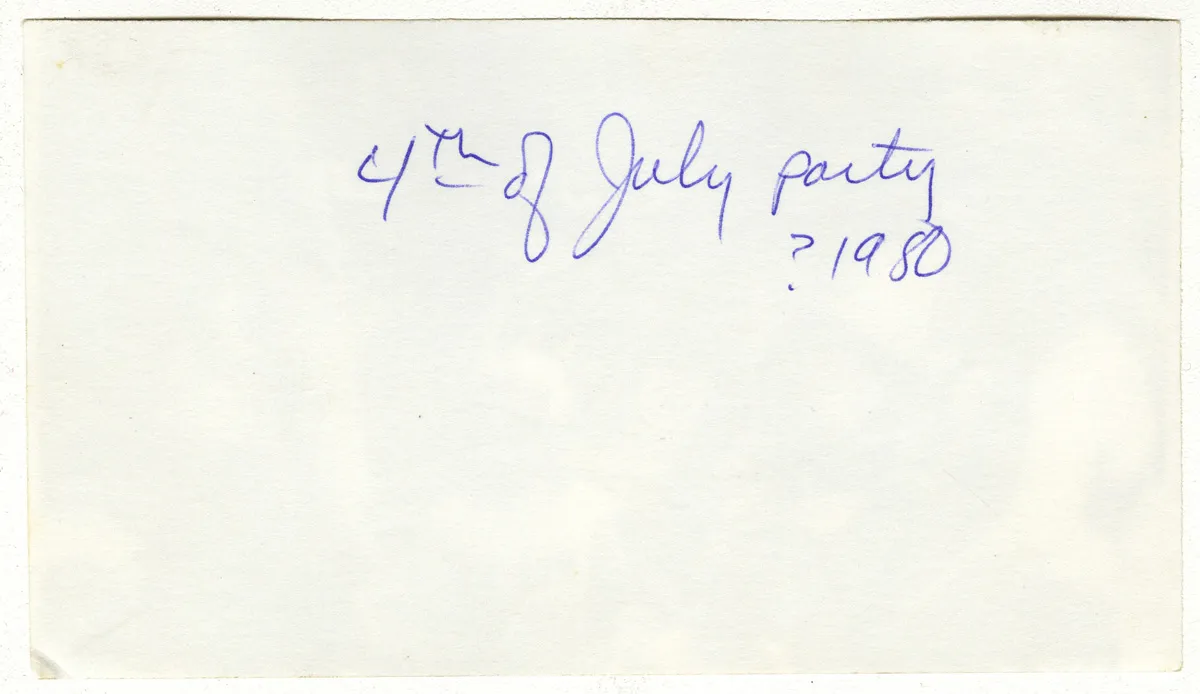 4th of July party
? 1980